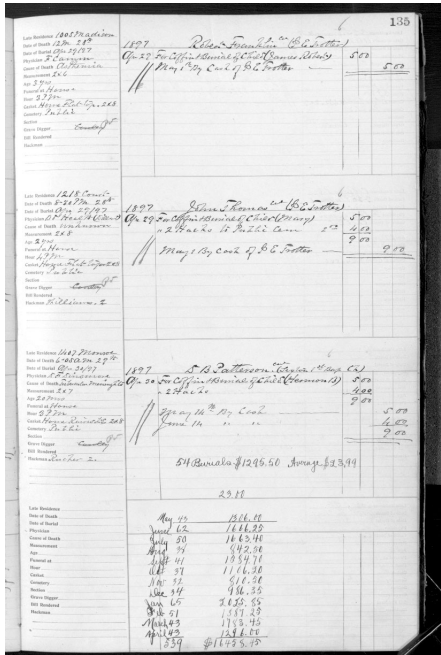 135
Late Residence 1005 Madison
Date of Death 12 M. 28th
Date of Burial Apr 29/97
Physician F Carmen
Cause of Death Asthenia
Measurement 2x6
Age 2 yrs
Funeral at House
Hour 3 P.M.
Cemetery Public
Section
Grave Digger
Bill Rendered
Hackman
1897 Robert Franklin (P E Trotter)
Apr 29 For Coffin & Burial of Child 5.00
May 1st By Cash of P E Trotter 5.00
Late Residence 1218 Court
Date of Death 8-20 P.M. 28th
Date of Burial Apr 29/97
Physician
Cause of Death unknown
Measurement 2x8
Age 2 yrs
Funeral at House
Hour 4 P.M.
Cemetery Public
Section
Grave Digger
Bill Rendered
Hackman Williams. 2
1897 John Thomas (P E Trotter)
Apr 29 For Coffin & Burial of Child (Mary) 5.00
" 2 Hacks to Public Cem 4.00
9.00
May 1 By Cash of P E Trotter 9.00
Late Residence 1407 Monroe
Date of Death 6-05 A.M. 29th
Date of Burial Apr 30/97
Physician
Cause of Death
Measurement 2x7
Age 20 mos
Funeral at House
Hour 3 P.M.
Cemetery Public
Section
Grave Digger
Bill Rendered
Hackman Rucker 2.
1897 S B Patterson
Apr 30 For Coffin & Burial of Child (Hermon B) 5.00
" 2 Hacks 4.00
9.00
May 14th By Cash 5.00
June 14 " " 4.00
9.00
54 Burials $1295.50 Average $23.99
23.10
Late Residence
Date of Death
Date of Burial
Physician
Cause of Death
Measurement
Age
Funeral at
Hour
Casket
Cemetery
Section
Grave Digger
Bill Rendered
Hackman
May 43 1306.00
June 62 1606.25
July 50 1663.40
Aug 38 842.50
Sept 41 1084.70
Oct 37 1106.20
Nov 32 810.50
Dec 34 986.35
Jan 65 2035.85
Feb 51 1387.25
March 43 1783.45
April 43 1296.00
539